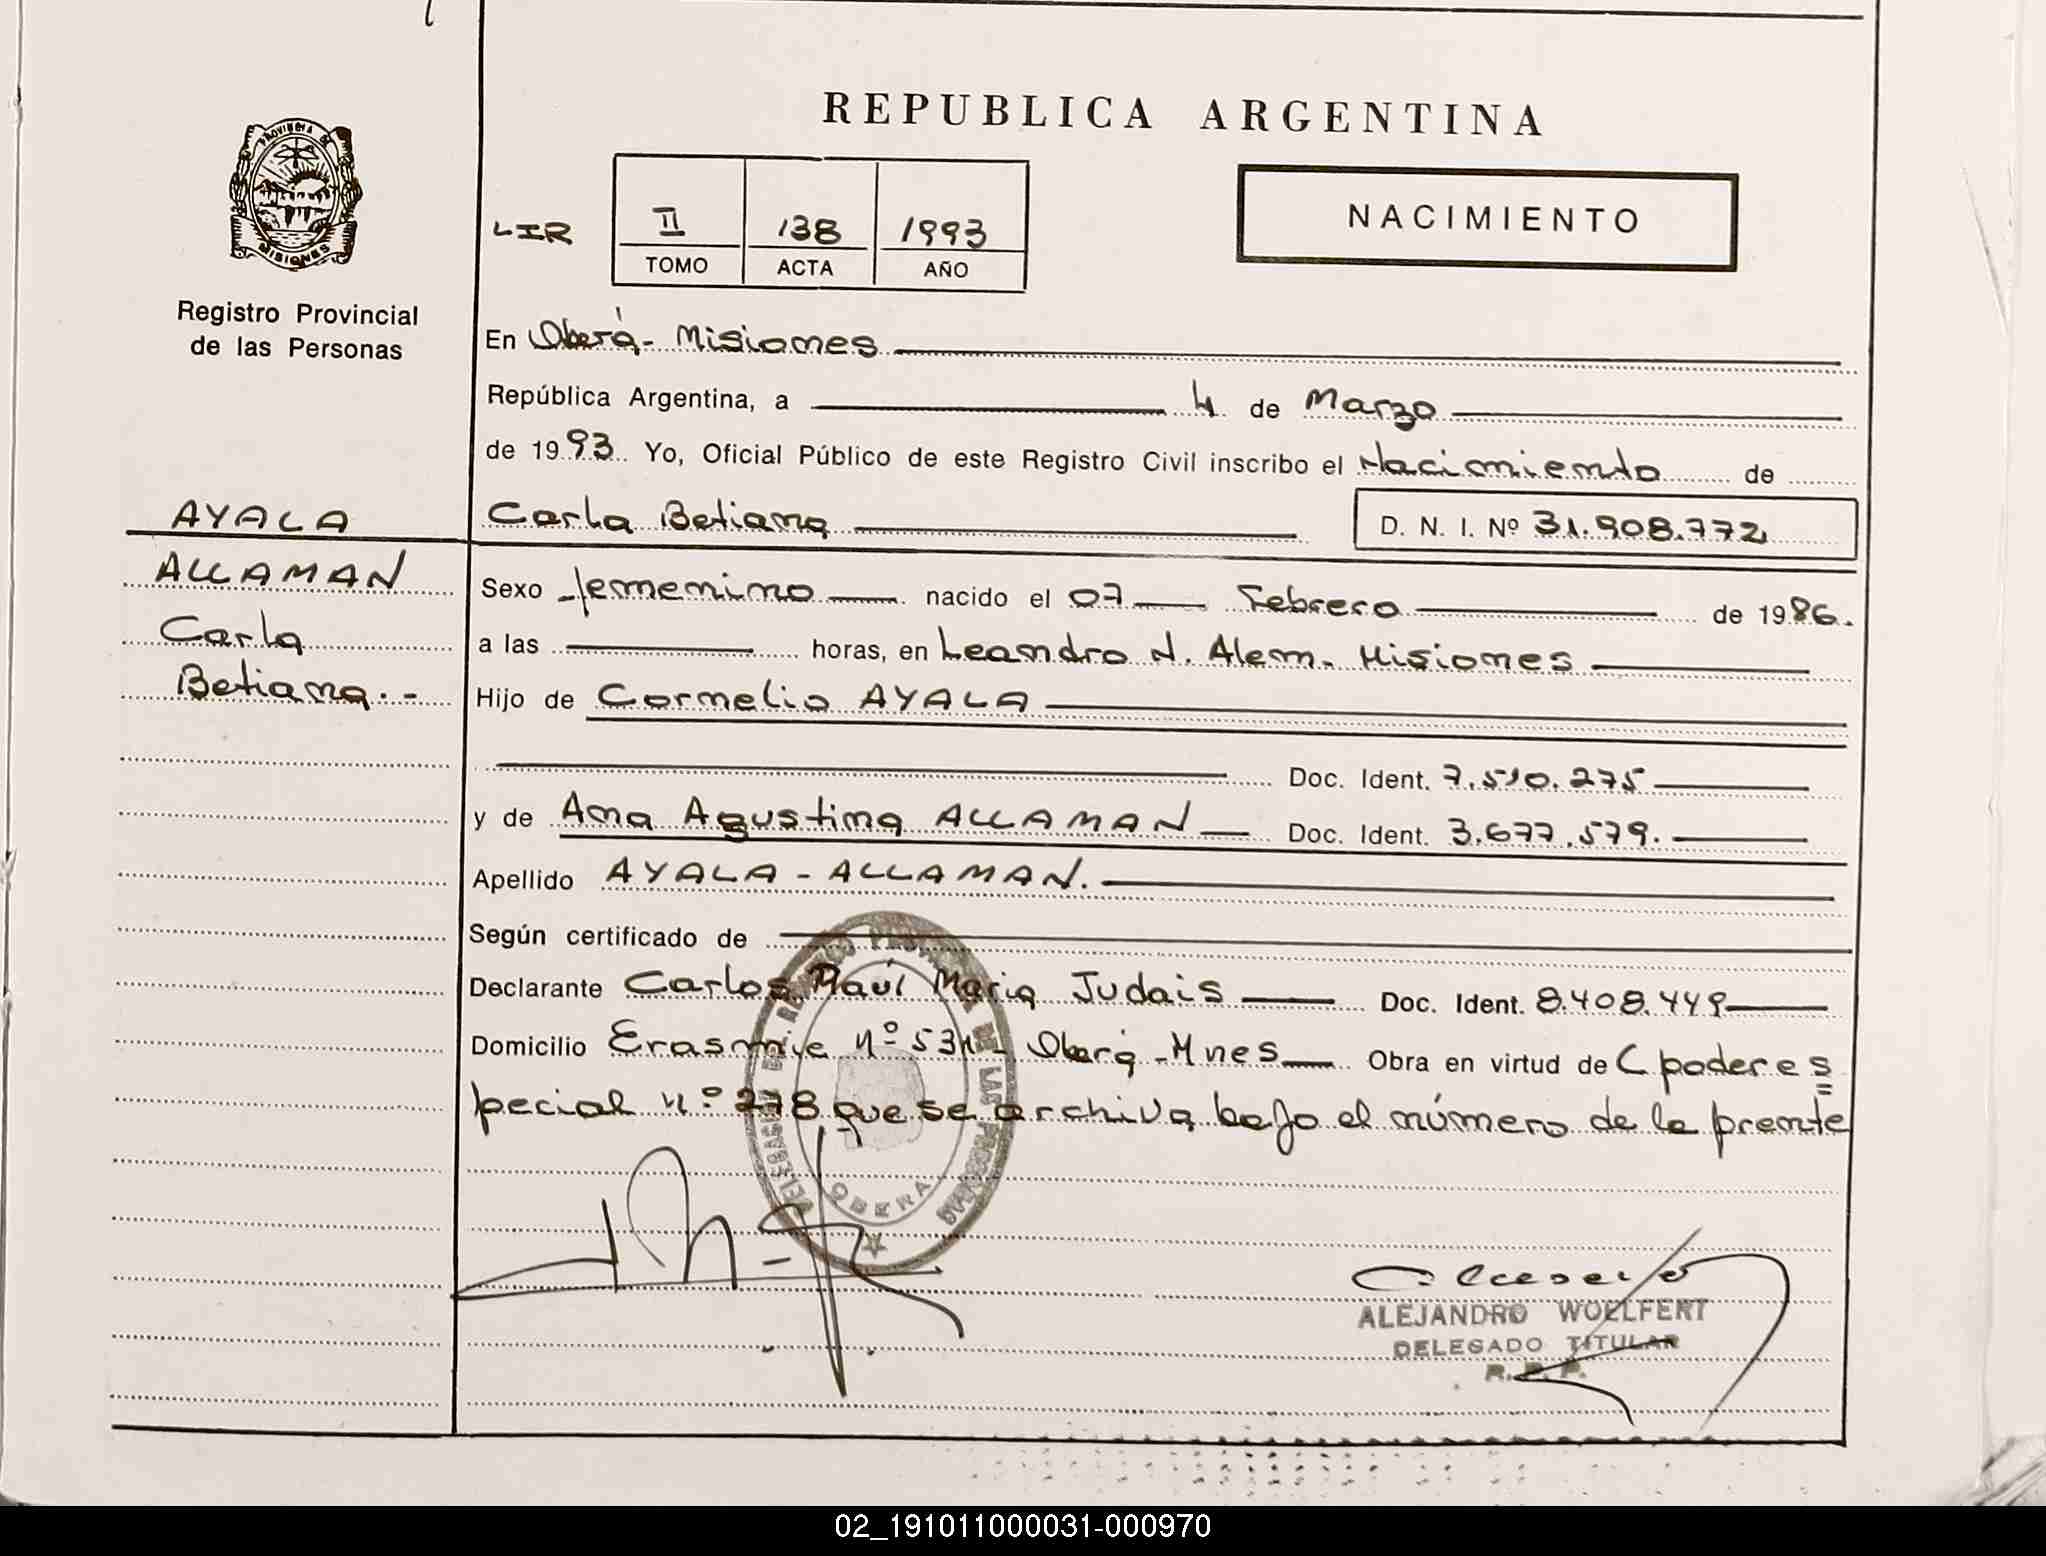 REPUBLICA ARGENTINA
PROVINCIA DE
MISIONES
Registro Provincial
de las Personas
LIR
II 138 1993
TOMO ACTA AÑO
NACIMIENTO
En Oberá - Misiones
República Argentina, a 4 de Marzo
de 1993 Yo, Oficial Público de este Registro Civil inscribo el Nacimiento de
AYALA
Carla Betiana D. N. I. Nº 31.908.772
ALLAMAN
Sexo femenino nacido el 07 Febrero de 1986.
Carla
a las horas, en Leandro N. Alem - Misiones
Betiana.-
Hijo de Cornelio AYALA
Doc. Ident. 7.510.275
y de Ana Agustina ALLAMAN Doc. Ident. 3.677.579.
Apellido AYALA - ALLAMAN.
Según certificado de
Declarante Carlos Raúl Maria Judais Doc. Ident. 8.408.449
Domicilio Nº Oberá - Mnes Obra en virtud de C poder es
pecial Nº 278 que se archiva bajo el número de la prente
OBERA
ALEJANDRO WOELFERT
DELEGADO TITULAR
R.P.P.
02_191011000031-000970